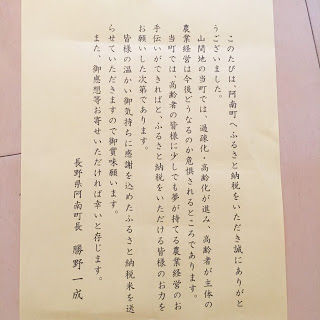 このたびは、阿南町へふるさと納税をいただき誠にありがと
うございました。
山間地の当町では、過疎化・高齢化が進み、高齢者が主体の
農業経営は今後どうなるのか危惧されるところであります。
当町では、高齢者の皆様に少しでも夢が持てる農業経営のお
手伝いができればと、ふるさと納税をいただける皆様のお力を
お願いした次第であります。
皆様の温かい御気持ちに感謝を込めたふるさと納税米を送
らせていただきますので御賞味願います。
また、御感想等お寄せいただければ幸いと存じます。
長野県阿南町長 勝野一成